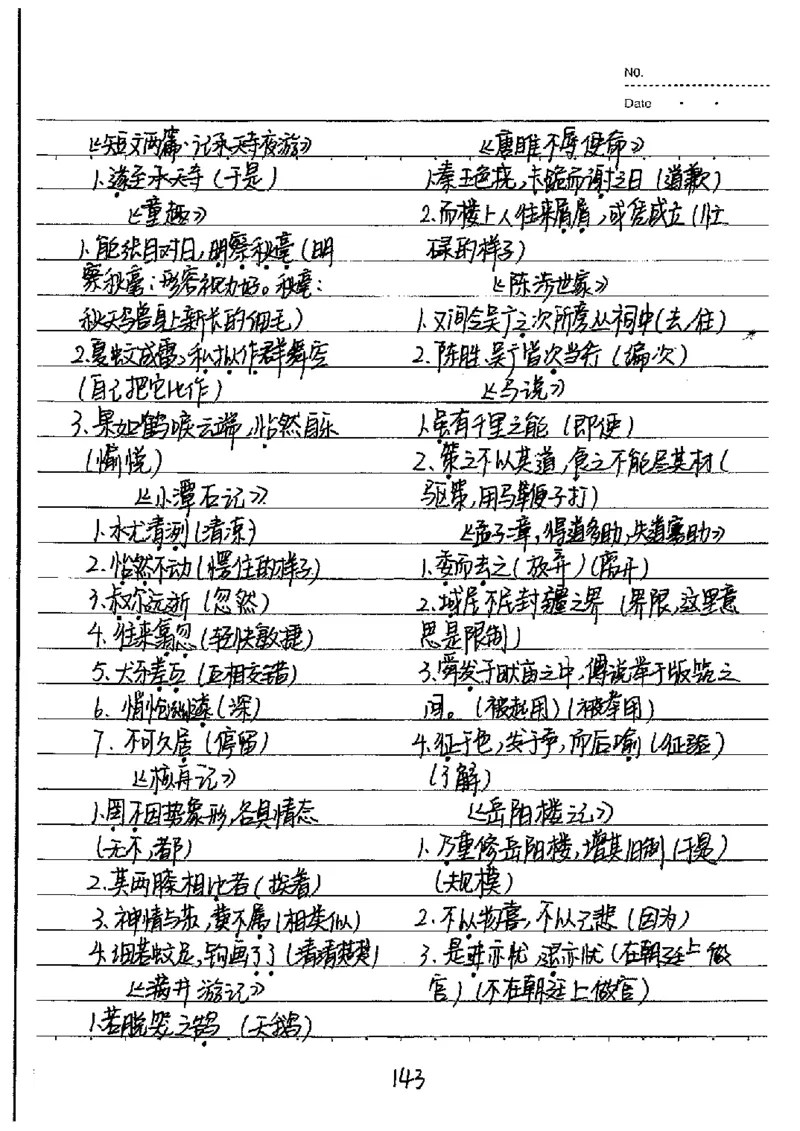 No.
Date
《短文两篇·记承天寺夜游》
1.遂至承天寺（于是）
《童趣》
1.能张目对日，明察秋毫（明
察秋毫：形容视力好。秋毫：
秋天鸟兽身上新长的细毛）
2.夏蚊成雷，私拟作群舞空
（自己把它比作）
3.果如鹤唳云端，怡然自乐
（愉悦）
《小潭石记》
1.水尤清冽（清凉）
2.怡然不动（愣住的样子）
3.俶尔远逝（忽然）
4.往来翕忽（轻快敏捷）
5.犬牙差互（互相交错）
6.悄怆幽邃（深）
7.不可久居（停留）
《核舟记》
1.罔不因势象形，各具情态
（无不，都）
2.其两膝相比者（挨着）
3.神情与苏、黄不属（相类似）
4.细若蚊足，钩画了了（清清楚楚）
《满井游记》
1.若脱笼之鹄（天鹅）
《唐雎不辱使命》
1.秦王色挠，长跪而谢之曰（道歉）
2.而楼上人往来屑屑，或凭或立（忙
碌的样子）
《陈涉世家》
1.又间令吴广之次所旁丛祠中（去，住）
2.陈胜、吴广皆次当行（编次）
《马说》
1.虽有千里之能（即使）
2.策之不以其道，食之不能尽其材（
驱策，用马鞭子打）
《孟子二章，得道多助，失道寡助》
1.委而去之（放弃）（离开）
2.域民不民封疆之界（界限，这里意
思是限制）
3.舜发于畎亩之中，傅说举于版筑之
间。（被起用）（被举用）
4.征于色，发于声，而后喻（征验）
（了解）
《岳阳楼记》
1.乃重修岳阳楼，增其旧制（于是）
（规模）
2.不以物喜，不以己悲（因为）
3.是进亦忧，退亦忧（在朝廷上做
官）（不在朝廷上做官）
143